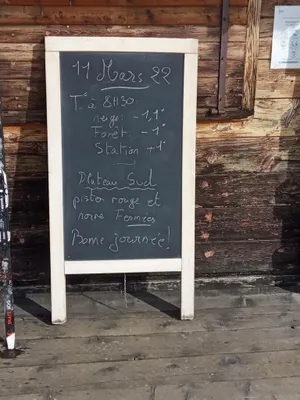 11 Mars 22
T° à 8H30
neige -1,1°
Forêt -1°
Station +1°
Plateau Sud
pistes rouge et
noire Fermées
Bonne journée!